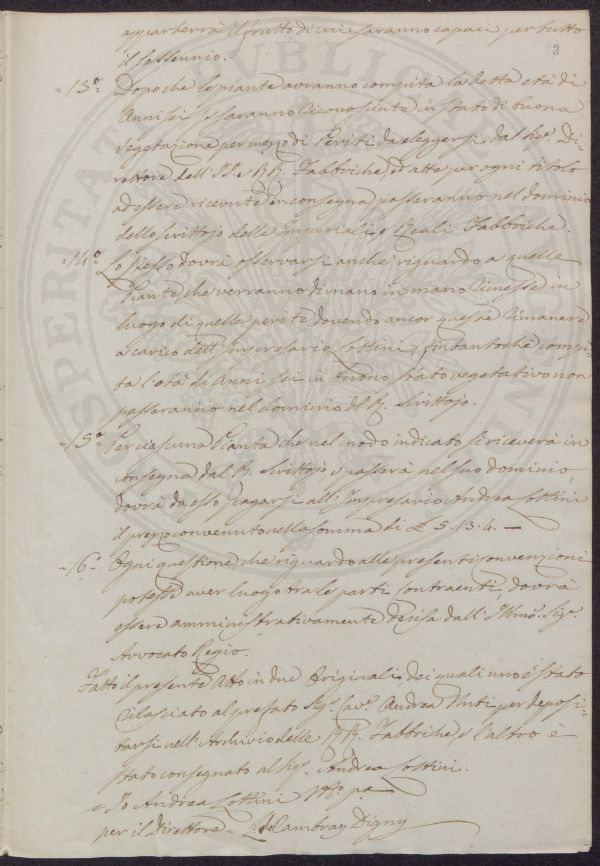 apparterrà il frutto di cui saranno capaci per tutto
3
il sessennio.
= 13.° Dopo che le piante avranno compita la detta età di
Anni sei, e saranno riconosciute in stato di buona
vegetazione per mezzo di Periti da eleggersi dal Sig.e Di=
rettore dell'II. e RR. Fabbriche, ed atte per ogni titolo
ad essere ricevute in consegna, passeranno nel dominio
dello scrittojo delle Imperiali, e Reali Fabbriche.
= 14.° Lo stesso dovrà osservarsi anche riguardo a quelle
Piante, che verranno di mano in mano rimesse in
luogo di quelle perite dovendo ancor queste rimanere
a carico dell'Impresario Lottini, fintantochè compi=
ta l'età di Anni sei in buono stato vegetativo non
passeranno nel dominio del R. Scrittojo.
= 15.° Per ciascuna Pianta che nel modo indicato si riceverà in
consegna dal R. Scrittojo e passerà nel suo dominio,
dovrà da esso pagarsi all'Impresario Andrea Lottini
il prezzo convenuto nella somma di £ 5. 13. 4. —
= 16.° Ogni questione che riguardo alle presenti convenzioni
potesse aver luogo tra le parti contraenti, dovrà
essere amministrativamente decisa dall'Illmo. Sig.e
Avvocato Regio.
Fatto il presente Atto in due Originali, dei quali uno è stato
rilasciato al prefato Sig.e Cav.e Andrea Nuti per deposi=
tarsi nell'Archivio delle RR. Fabbriche, e l'altro è
stato consegnato al Sig.e Andrea Lottini.
= Io Andrea Lottini
per il Direttore = De Cambray Digny
PROSPERITATI PUBLICAE